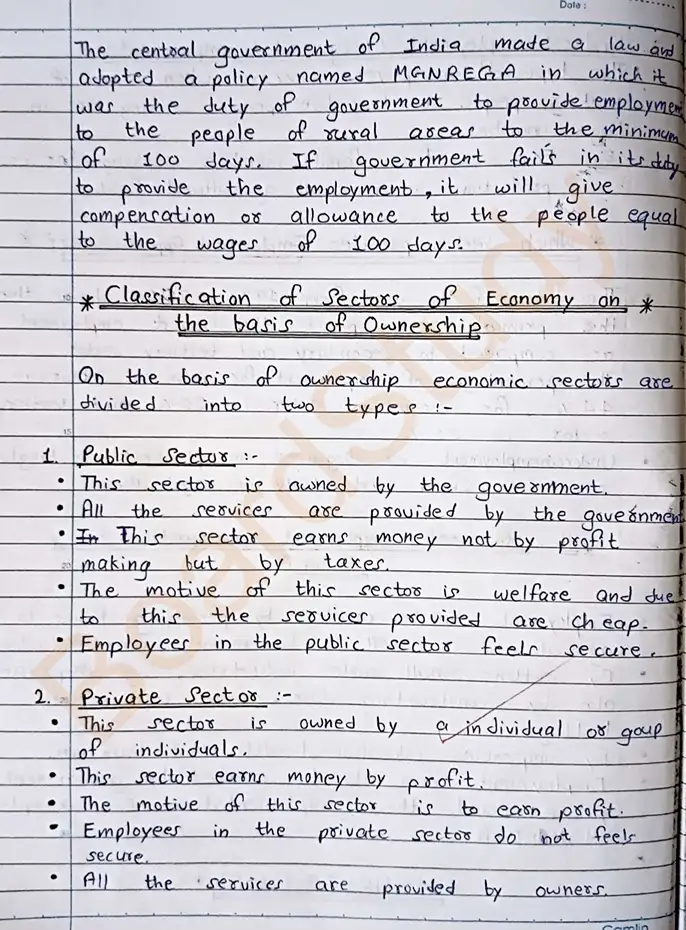 Date :
The central government of India made a law and
adopted a policy named MGNREGA in which it
was the duty of government to provide employment
to the people of rural areas to the minimum
of 100 days. If government fails in its duty
to provide the employment, it will give
compensation or allowance to the people equal
to the wages of 100 days.
* Classification of Sectors of Economy on *
the basis of Ownership
On the basis of ownership economic sectors are
divided into two types :-
1. Public Sector :-
• This sector is owned by the government.
• All the services are provided by the government
• In This sector earns money not by profit
making but by taxes.
• The motive of this sector is welfare and due
to this the services provided are cheap.
• Employees in the public sector feels secure.
2. Private Sector :-
• This sector is owned by a individual or goup
of individuals.
• This sector earns money by profit.
• The motive of this sector is to earn profit.
• Employees in the private sector do not feels
secure.
• All the services are provided by owners.
BoardStudy
Camlin